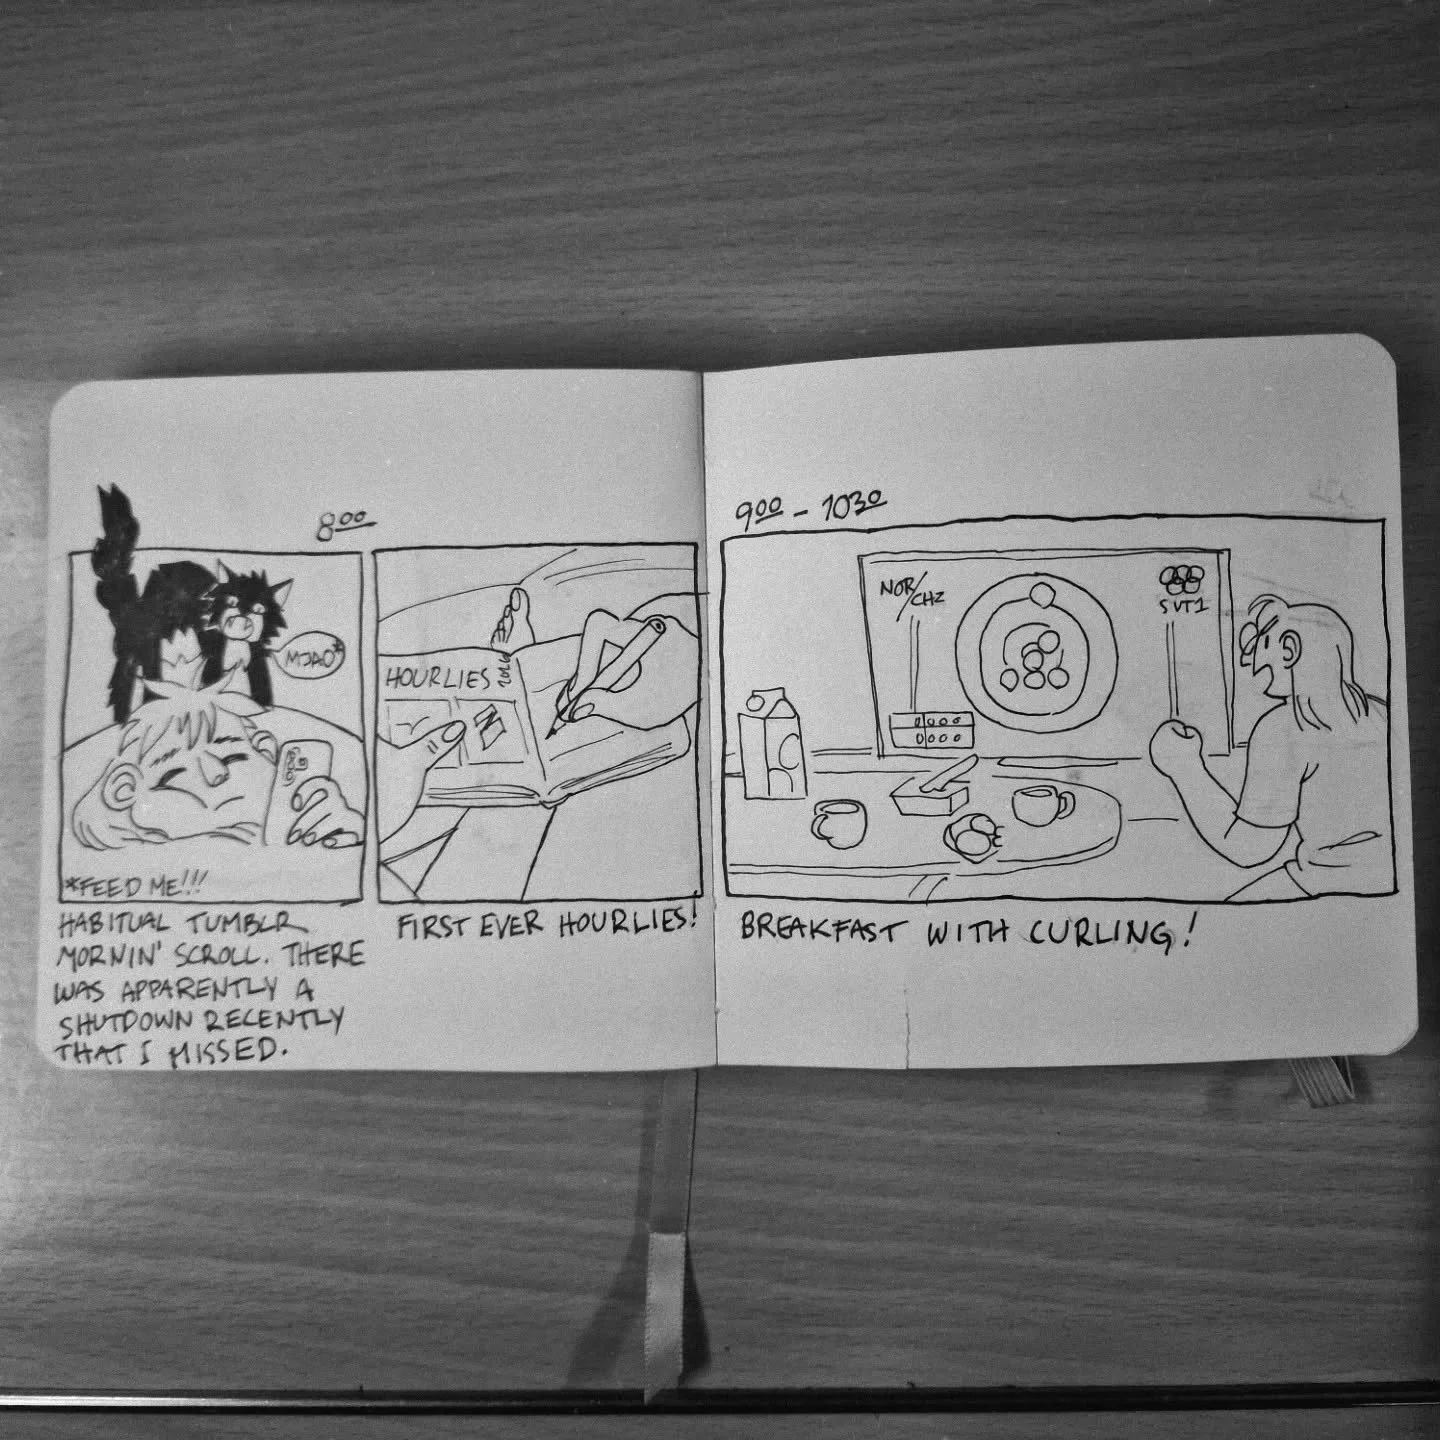 8⁰⁰
MJAO*
*FEED ME!!!
HABITUAL TUMBLR
MORNIN' SCROLL. THERE
WAS APPARENTLY A
SHUTDOWN RECENTLY
THAT I MISSED.
HOURLIES
2026
FIRST EVER HOURLIES!
9⁰⁰ - 10³⁰
NOR/
CHZ
SVT1
BREAKFAST WITH CURLING!